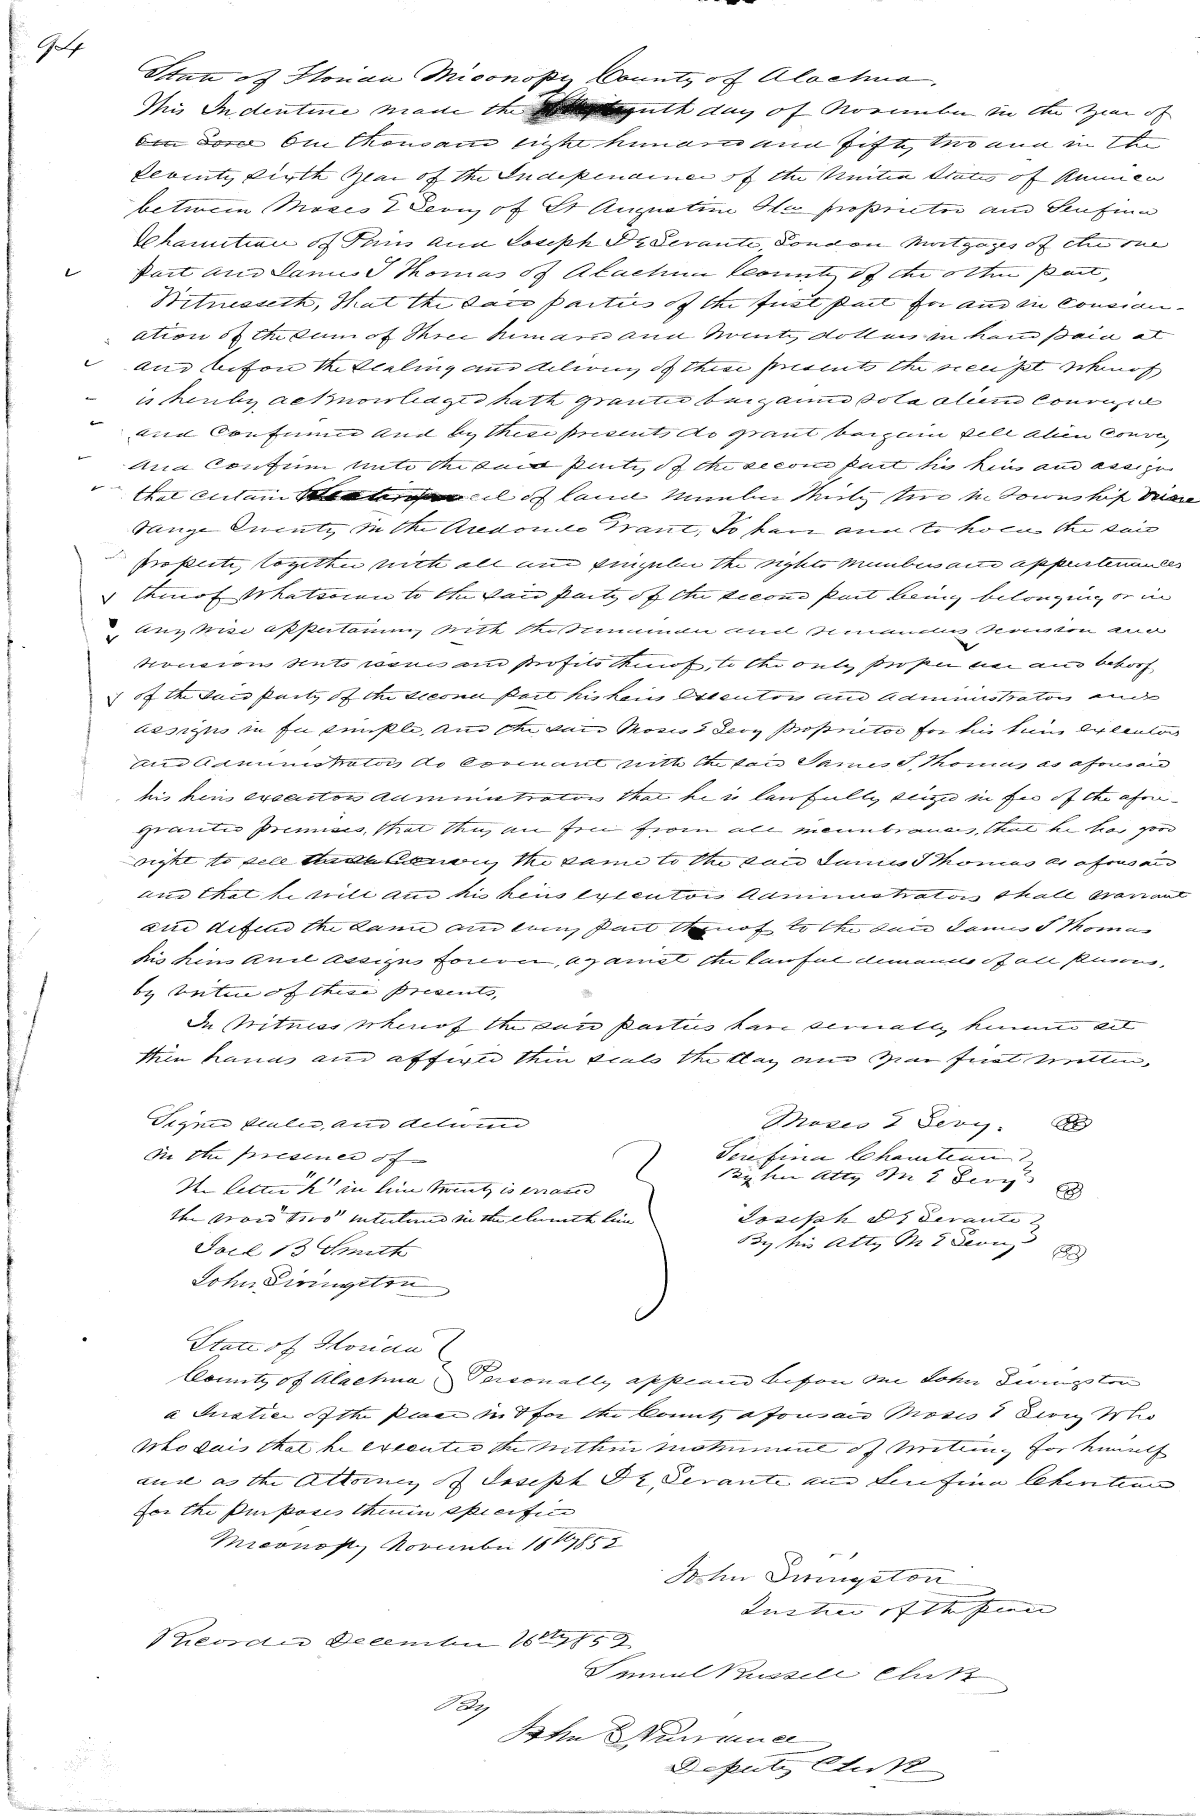 94
State of Florida Miconopy County of Alachua.
This Indenture made the day of November in the Year of
One thousand eight hundred and fifty two and in the
Seventy sixth Year of the Independence of the United States of America
between Moses E Levy of St Augustine Fla proprietor and Serefina
Chauviteau of Paris and Joseph De Levante, London Mortgages of the one
part and James S Thomas of Alachua County of the other part,
Witnesseth, That the said parties of the first part for and in consider-
ation of the sum of Three hundred and twenty dollars in hand paid at
and before the Sealing and delivery of these presents the receipt whereof
is hereby acknowledged hath granted bargained sold aliend conveyed
and Confirmed and by these presents do grant bargain sell alien convey
and confirm unto the said party of the second part his heirs and assigns
that certain of land number Thirty two in Township
range Twenty in the Aredondo Grant, To have and to hold the said
property together with all and singular the rights members and appertenances
thereof whatsoever to the said party of the second part being belonging or in
any wise appertaining with the remainder and remanders revision and
revisions rents issues and profits thereof, to the only proper use and behoof
of the said party of the second part his heirs Executors and administrators and
assigns in fee simple, and the said Moses E Levy proprietor for his heirs executors
and administrators do covenant with the said James S, Thomas as aforesaid
his heirs executors administrators that he is lawfully seized in fee of the afore-
granted premises, that they are free from all incumbrances, that he has good
right to sell the same to the said James S Thomas as aforesaid
and that he will and his heirs executors Administrators shall warrant
and defend the same and every part thereof to the said James S Thomas
his heirs and assigns forever, against the lawful demands of all persons,
by virtue of these presents,
In Witness whereof the said parties have severally hereunto set
their hands and affixed their seals the day and year first written,
Signed sealed, and delivered
in the presence of
The letter "h" in line twenty is erased
the word "two" interlined in the eleventh line
Joel B Smith
John Livingston
Moses E Levy.
Serefina Chauviteau
By her Atty M E Levy
Joseph DE Levante
By his Atty M E Levy
State of Florida
County of Alachua Personally appeared before me John Livingston
a Justice of the peace in & for the County aforesaid Moses E Levy Who
who sais that he executed the within instrument of writing for himself
and as the Attorney of Joseph DE, Levante and Serefina Chaviteau
for the purposes therein specified
Miconopy November 1852
John Livingston
Justice of the peace
Recorded December 16th 1852
Samuel Russell Clerk
By
John
Deputy Clerk